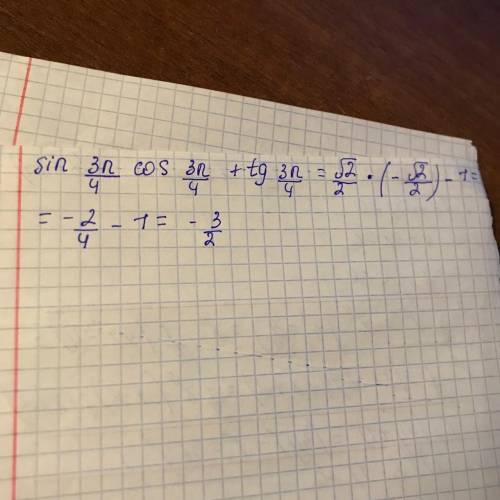 sin 3π/4 cos 3π/4 + tg 3π/4 = √2/2 • (-√2/2) - 1 =
= -2/4 - 1 = -3/2